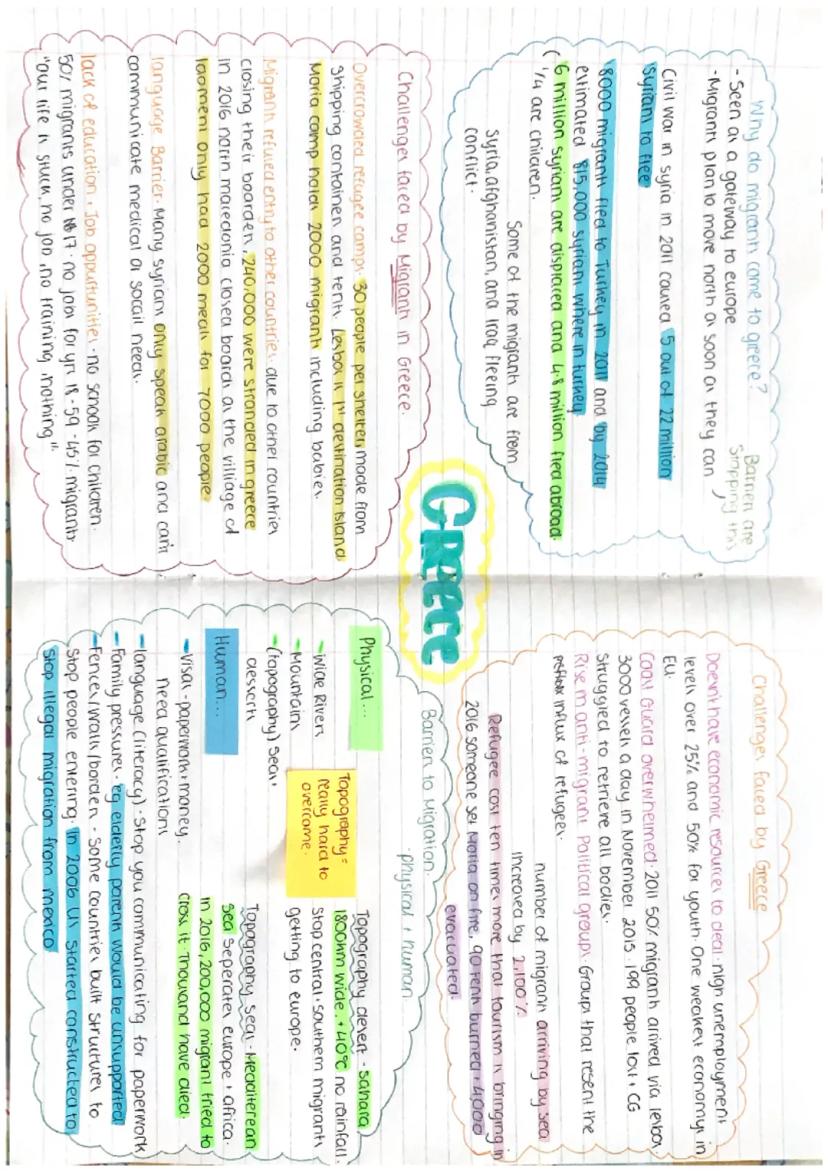 Greece
Why do migrants come to greece?
- Seen as a gateway to europe
- Migrants plan to move north as soon as they can
Barriers are
stopping this
Civil war in syria in 2011 caused 5 out of 22 million
syrians to flee
8000 migrants fled to Turkey in 2011 and by 2014
estimated 815,000 syrians where in turkey.
6 million syrians are displaced and 4.8 million fled abroad
1/4 are children.
Some of the migrants are from
Syria, afghanistan, and Iraq fleeing
conflict.
Challenges faced by Greece
Doesn't have economic resources to deal. high unemployment
levels over 25% and 50% for youth. One weakest economys in
EU.
Coast Guard overwhelmed. 2011 50% migrants arrived via lesbos.
3000 vessels a day in November 2015. 199 people lost + CG
struggled to retrieve all bodies.
Rise in anti-migrant Political groups. Groups that resent the
influx of refugees.
number of migrants arriving by sea
increased by 2,100%
Refugee cost ten times more that tourism is bringing in
2016 someone set Moria on fire, 90 tents burned + 4,000
evacuated.
Challenges faced by Migrants in Greece.
Overcrowded refugee camps. 30 people per shelter, made from
shipping containers and tents. Lesbos is 1st destination island
Moria camp holds 2000 migrants including babies.
Migrants refused entry to other countries due to other countries
closing their boarders. 240,000 were stranded in greece
in 2016 north macedonia closed boards as the villiage of
Idomeni only had 2000 meals for 7000 people
language Barrier. Many syrians only speak arabic and can't
communicate medical or socail needs.
lack of education + Job oppurtunities. no schools for children.
50% migrants under 17. no jobs for yrs 18-59 - 45% migrants
"our life is stuck, no job, no training, nothing".
Barriers to Migration.
- physical + human
Physical...
- wide Rivers
- Mountains
- (topography) seas,
desserts
Topography =
really hard to
overcome.
Topography desert - Sahara
1800km wide. +40°c no rainfall.
stop central + southern migrants
getting to europe.
Topography Seas - Mediterean
sea seperates europe + africa.
In 2016, 200,000 migrants tried to
cross it. Thousands have died.
Human...
- visas - paperwork + money.
need qualifications
- language (literacy) - Stop you communicating for paperwork
- Family pressures. eg elderly parents would be unsupported
- Fences/walls/borders - Some countries built structures to
stop people entering. In 2006 US started constructed to
stop illegal migration from mexico